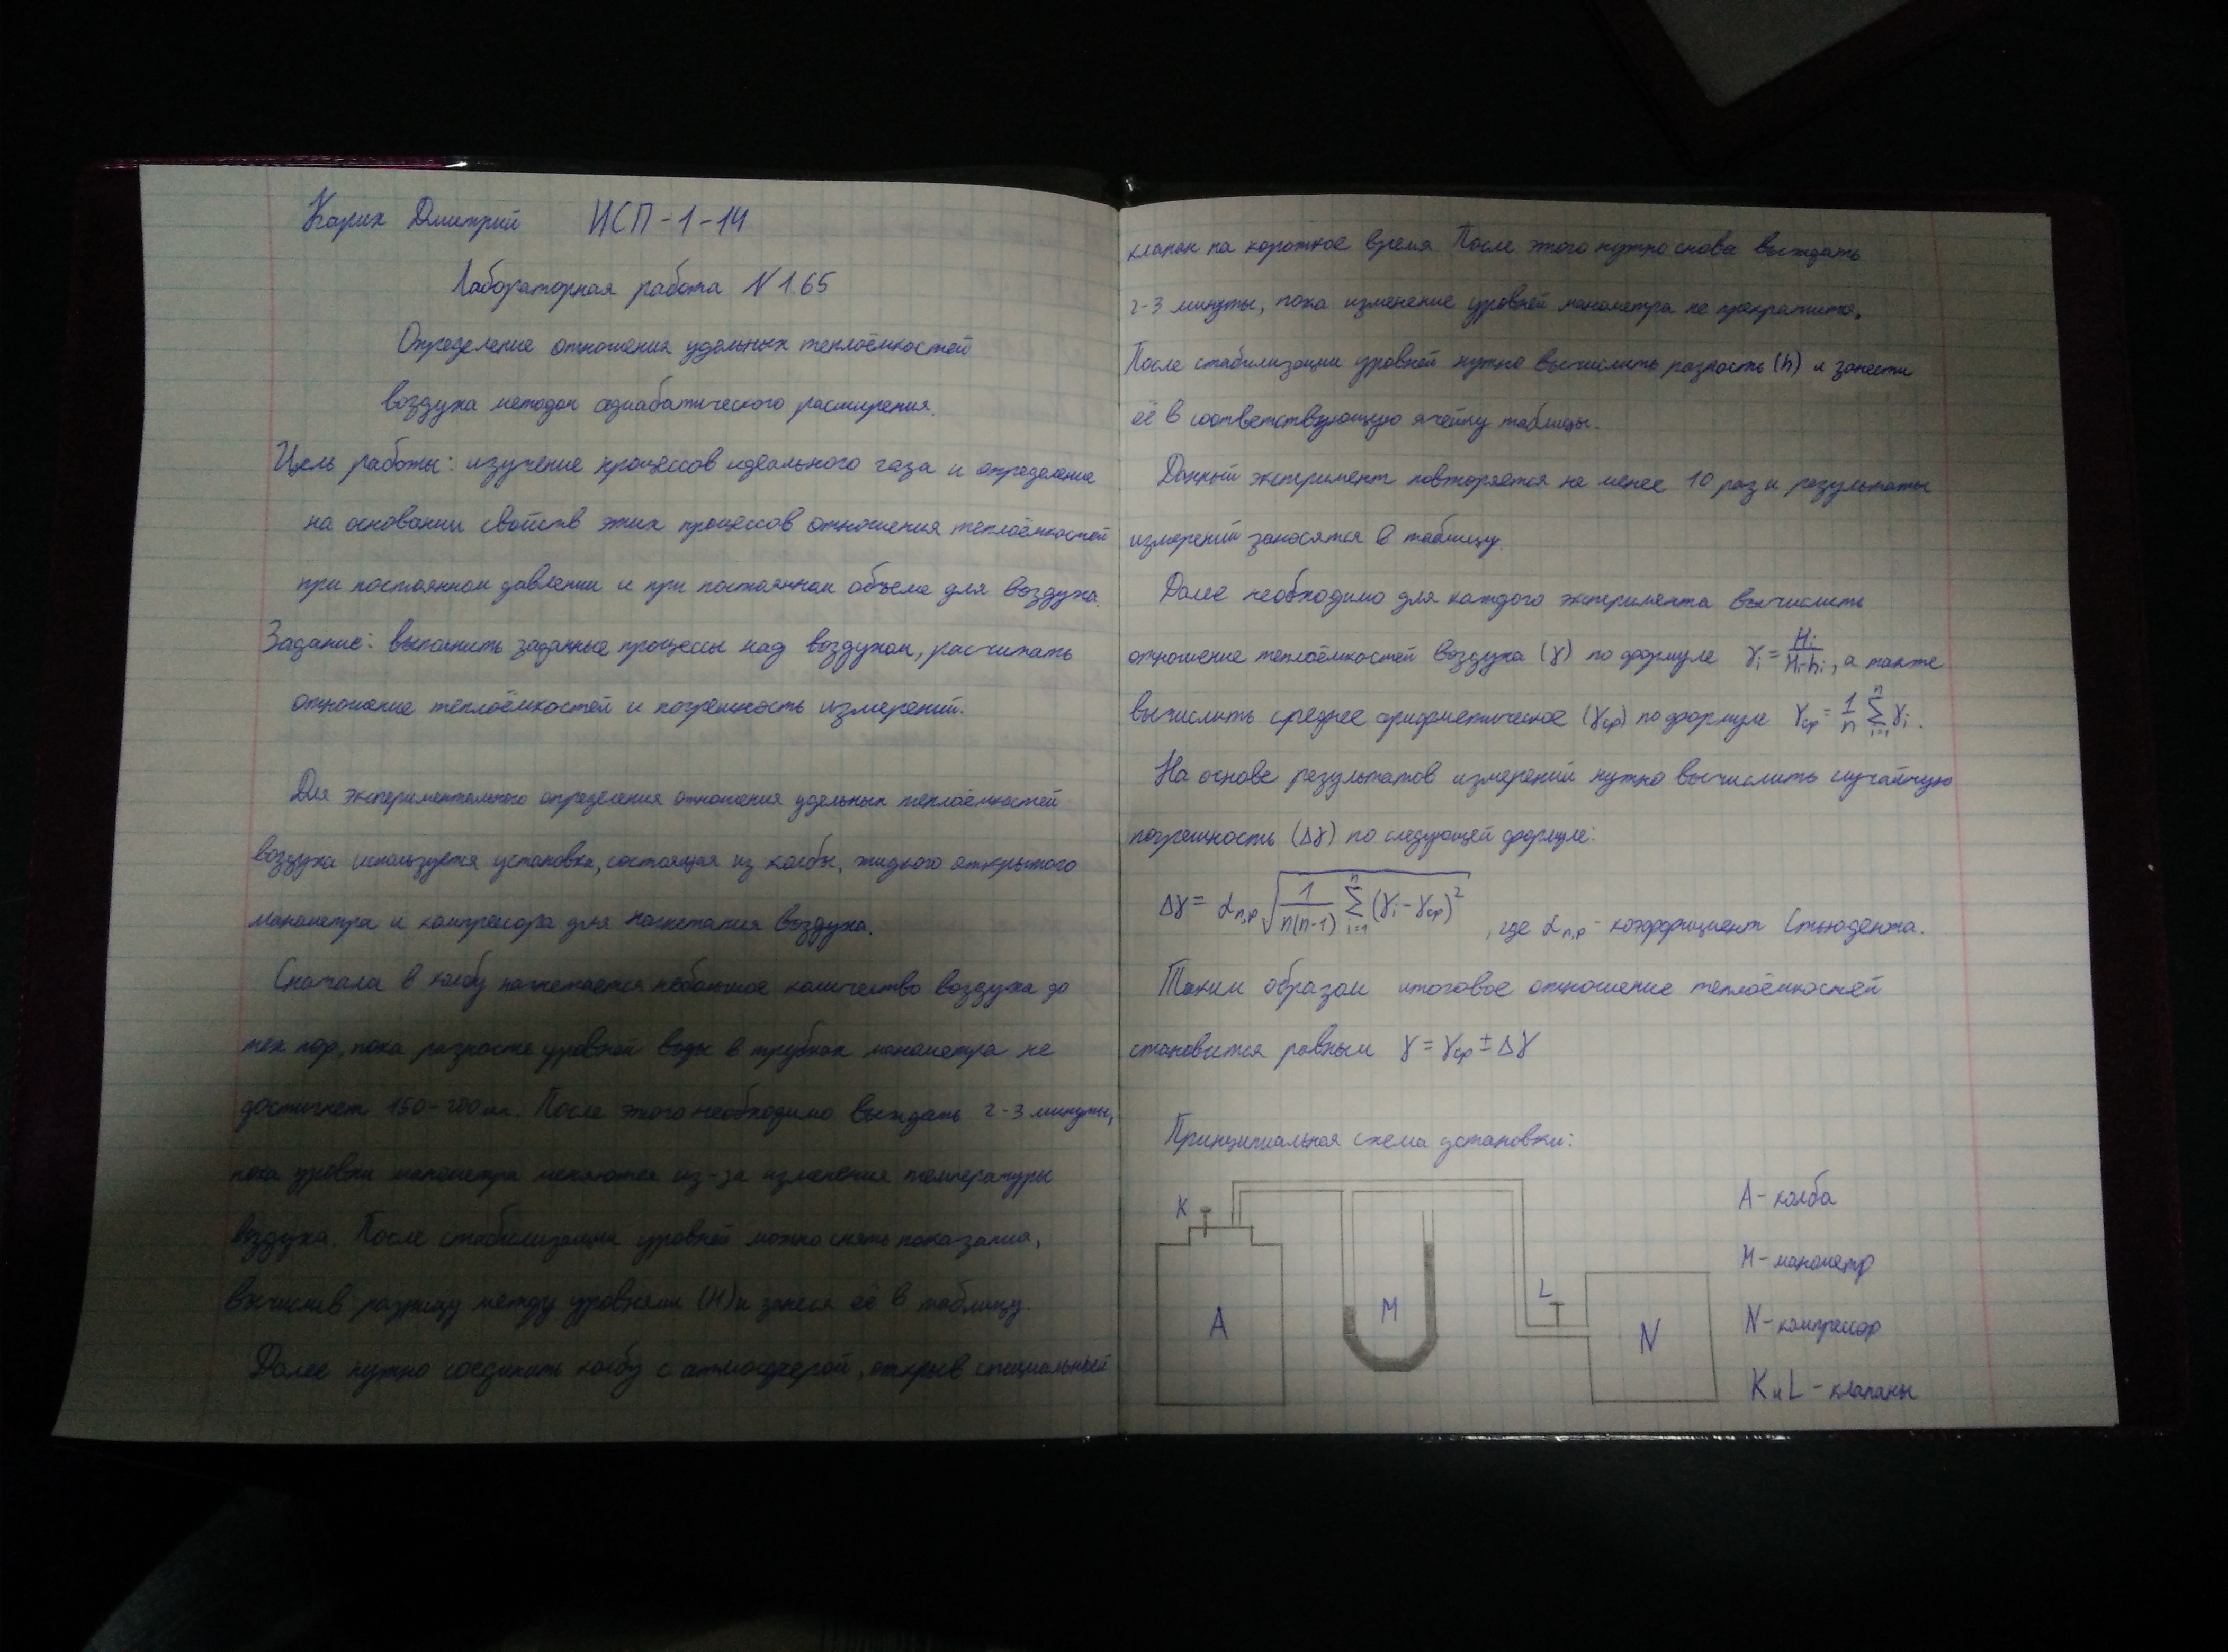 Карих Дмитрий ИСП-1-14
Лабораторная работа N 1.65
Определение отношения удельных теплоёмкостей
воздуха методом адиабатического расширения.
Цель работы: изучение процессов идеального газа и определение
на основании свойств этих процессов отношения теплоёмкостей
при постоянном давлении и при постоянном объеме для воздуха.
Задание: выполнить заданные процессы над воздухом, расчитать
отношение теплоёмкостей и погрешность измерений.
Для экспериментального определения отношения удельных теплоёмкостей
воздуха используется установка, состоящая из колбы, жидкого открытого
манометра и компрессора для нагнетания воздуха.
Сначала в колбу нагнетается небольшое количество воздуха до
тех пор, пока разность уровней воды в трубках манометра не
достигнет 150-200 мм. После этого необходимо выждать 2-3 минуты,
пока уровни манометра меняются из-за изменения температуры
воздуха. После стабилизации уровней можно снять показания,
вычислив разницу между уровнями (H) и занеся её в таблицу.
Далее нужно соединить колбу с атмосферой, открыв специальный
клапан на короткое время. После этого нужно снова выждать
2-3 минуты, пока изменение уровней манометра не прекратится.
После стабилизации уровней нужно вычислить разность (h) и занести
её в соответствующую ячейку таблицы.
Данный эксперимент повторяется не менее 10 раз и результаты
измерений заносятся в таблицу.
Далее необходимо для каждого эксперимента вычислить
отношение теплоёмкостей воздуха (γ) по формуле γᵢ = Hᵢ/(Hᵢ-hᵢ), а также
вычислить среднее арифметическое (γср) по формуле γср = 1/n Σ γᵢ.
На основе результатов измерений нужно вычислить случайную
погрешность (Δγ) по следующей формуле:
Δγ = αn,p √(1/(n(n-1)) Σ (γᵢ - γср)²), где αn,p - коэффициент Стьюдента.
Таким образом итоговое отношение теплоёмкостей
становится равным γ = γср ± Δγ
Принципиальная схема установки:
K
A
M
L
N
A - колба
M - манометр
N - компрессор
K и L - клапаны